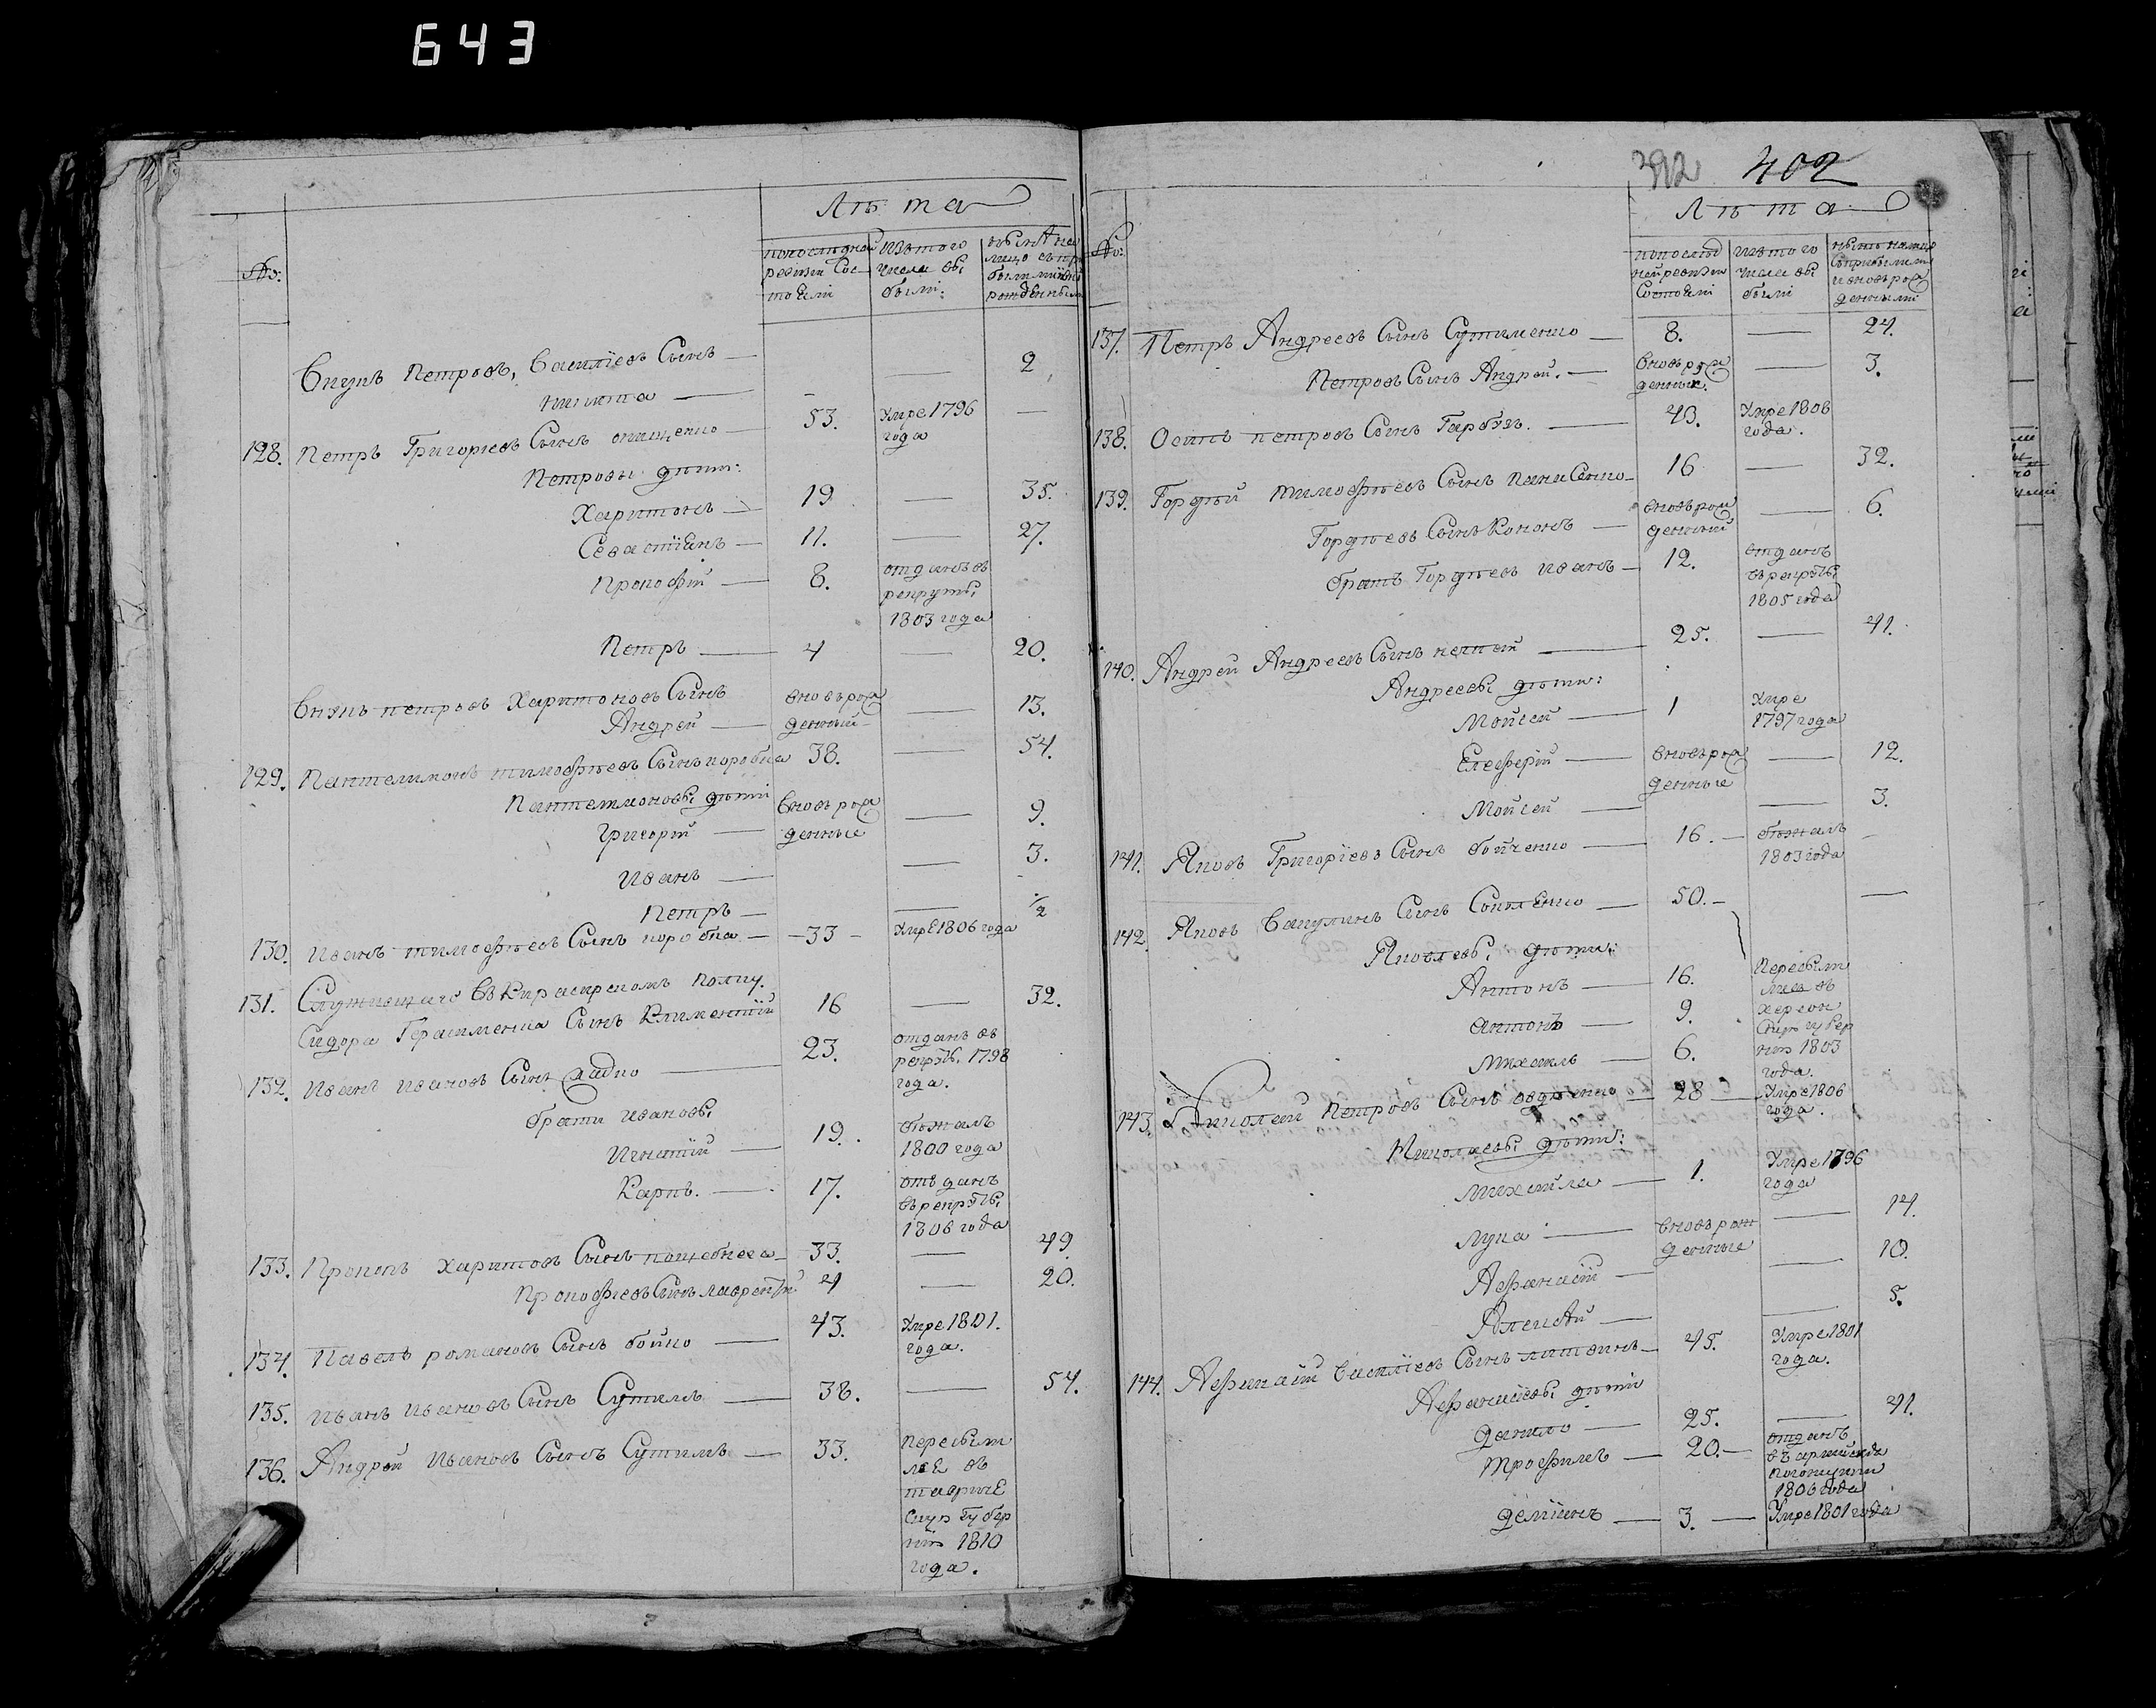 643
Лѣта
№:
попоследней ревизіи состояли
изътого числа выбыли:
нынѣ на лицо съ прибылыми и вновь рожденными
Внукъ Петровъ, Василіевъ Сынъ — — 2
Никита —
128. Петръ Григорьевъ Сынъ онищенко — 53. Умре 1796 года —
Петровы дѣти:
Харитонъ — 19 — 35.
Севастіянъ — 11. — 27.
Прокофій — 8. отданъ въ рекруты 1803 года
Петръ — 4 — 20.
Внукъ петровъ Харитоновъ Сынъ
Андрей — вновь рожденный — 13.
129. Пантелимонъ тимофѣевъ Сынъ коробка 38. — 54.
Пантелимоновы дѣти
Григорій — вновь рожденные — 9.
Иванъ — — 3.
Петръ — — 1/2
130. Иванъ тимофѣевъ Сынъ коробка — 33 — Умре 1806 года
131. Служащаго въ Кирасирскомъ полку.
Сидора Герасименка Сынъ Климентій 16 — 32.
132. Иванъ Ивановъ Сынъ — 23. отданъ въ рекруты 1798 года.
брати Ивановы
Игнатій — 19. бѣжалъ 1800 года
Карпъ. — 17. отъданъ въ рекруты 1806 года
133. Прокопъ Харитовъ Сынъ — 33. — 49.
Прокофіевъ Сынъ лаврентій 4 — 20.
134. Павелъ романовъ Сынъ бойко — 43. Умре 1801. года.
135. Иванъ Ивановъ Сынъ Сутила — 38. — 54.
136. Андрей Ивановъ Сынъ Сутила — 33. Перевылсѣ въ таврическую губернію 1810 года.
392 402
Лѣта
№:
попоследней ревизіи состояли
изътого числа выбыли
нынѣ налицо съприбылыми и вновь рожденными
137. Петръ Андреевъ Сынъ Сутименко — 8. — 24.
Петровъ Сынъ Андрей. — вновь рожденныи. — 3.
138. Осипъ петровъ Сынъ Гарбузъ. — 43. Умре 1806 года.
139. Гордѣй тимофѣевъ Сынъ панасенко — 16 — 32.
Гордѣевъ Сынъ Кононъ — вновь рожденный — 6.
братъ Гордѣевъ Иванъ — 12. отданъ въ рекруты 1805 года
140. Андрей Андреевъ Сынъ — 25. — 41.
Андреевы дѣти:
Мойсей — 1 Умре 1797 года
Елеферій — вновь рожденные — 12.
Мойсей — — 3.
141. Яковъ Григоріевъ Сынъ бойченко — 16. — бѣжалъ 1803 года —
142. Яковъ Вакулинъ Сынъ — 50. — —
Яковлевы дѣти:
Антонъ — 16. Перевылись въ херсонскую губернію 1803 года.
антонъ — 9.
Михаилъ — 6.
143. Николай Петровъ Сынъ — 28 — Умре 1806 года.
Николаевы дѣти:
Михайла — 1. Умре 1796 года
Лука — вновь рожденные — 14.
Афанасій — — 10.
Алексѣй — — 5.
144. Афанасій василіевъ Сынъ литвинъ — 45. Умре 1801 года.
Афанасіевы дѣти
данило — 25. — 41.
трофимъ — 20. — отданъ 1806 года
деміянъ — 3. — Умре 1801 года